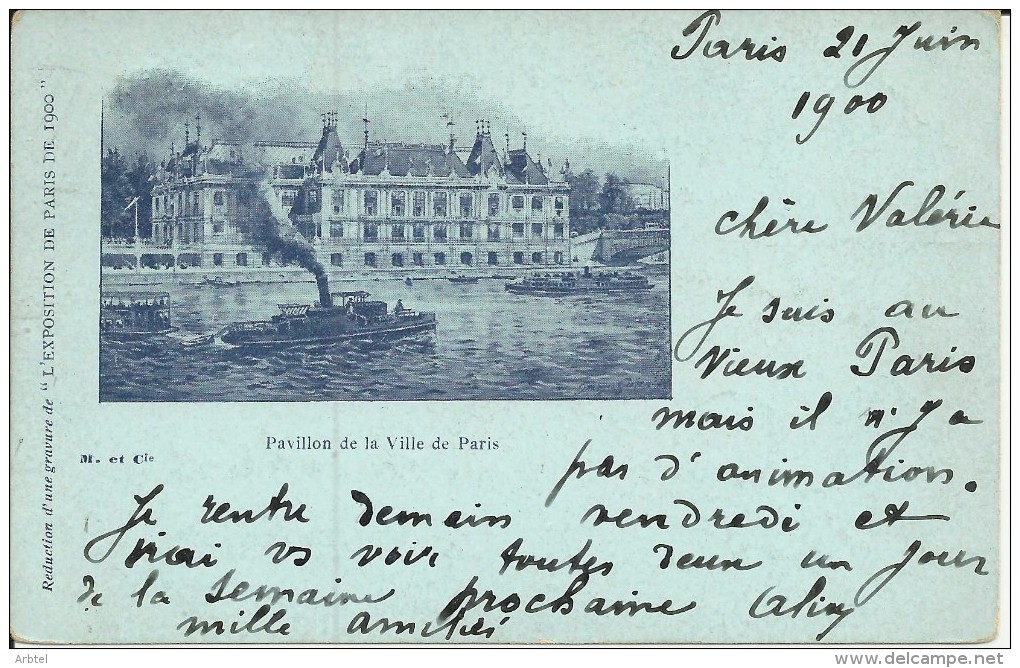 Paris 21 Juin
1900
chère Valérie
Je suis au
Vieux Paris
mais il n'y a
pas d'animation.
Je rentre demain vendredi et
irai vs voir toutes deux un jour
de la semaine prochaine
mille amitiés
Pavillon de la Ville de Paris
M. et Cie
Reduction d'une gravure de "L'EXPOSITION DE PARIS DE 1900"
Arbtel
www.delcampe.net